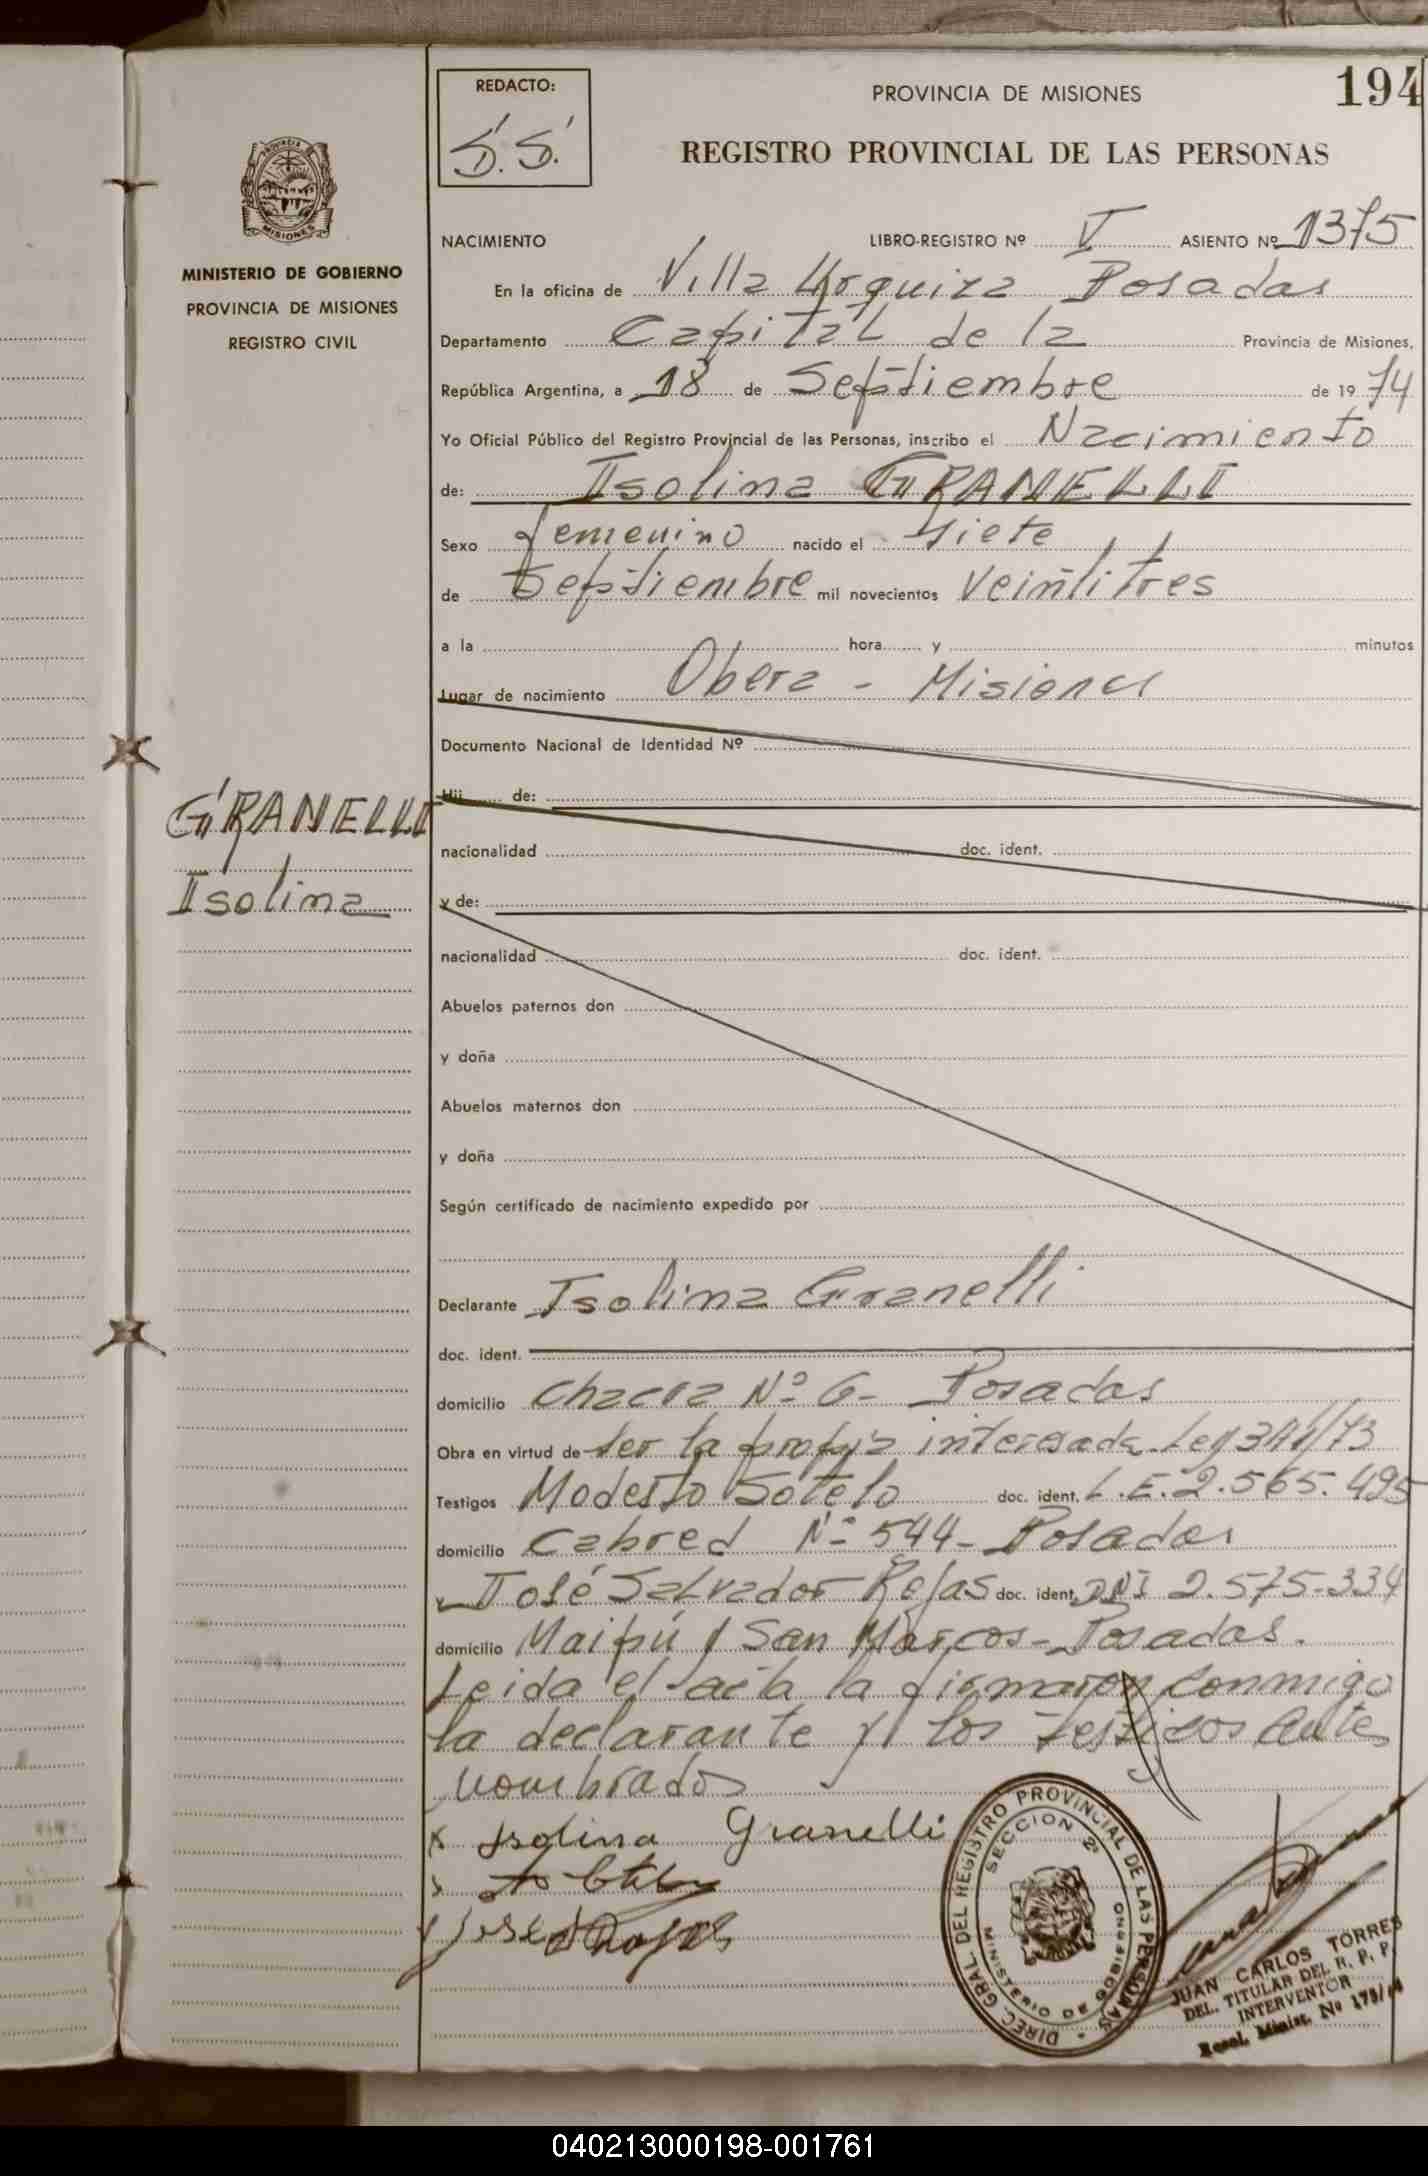 REDACTO:
S.S.
PROVINCIA DE MISIONES
194
REGISTRO PROVINCIAL DE LAS PERSONAS
PROVINCIA
MISIONES
MINISTERIO DE GOBIERNO
PROVINCIA DE MISIONES
REGISTRO CIVIL
GRANELLI
Isolina
NACIMIENTO LIBRO-REGISTRO Nº V ASIENTO Nº 1375
En la oficina de Villa Urquiza Posadas
Departamento Capital de la Provincia de Misiones,
República Argentina, a 18 de Septiembre de 1974
Yo Oficial Público del Registro Provincial de las Personas, inscribo el Nacimiento
de: Isolina GRANELLI
Sexo femenino nacido el siete
de Septiembre mil novecientos veintitres
a la hora y minutos
Lugar de nacimiento Obera - Misiones
Documento Nacional de Identidad Nº
Hij de:
nacionalidad doc. ident.
y de:
nacionalidad doc. ident.
Abuelos paternos don
y doña
Abuelos maternos don
y doña
Según certificado de nacimiento expedido por
Declarante Isolina Granelli
doc. ident.
domicilio Chacra Nº 6- Posadas
Obra en virtud de ser la propia interesada. Ley
Testigos Modesto Sotelo doc. ident. L.E. 2.565.495
domicilio Cabred Nº 544- Posadas
y José Salvador Rojas doc. ident. DNI 2.575.334
domicilio Maipú y San Marcos- Posadas.
Leida el acta la firmaron conmigo
la declarante y los testigos ante
nombrados
x Isolina Granelli
José Rojas
DIREC. GRAL. DEL REGISTRO PROVINCIAL DE LAS PERSONAS
SECCION 2ª
MINISTERIO DE GOBIERNO
JUAN CARLOS TORRES
DEL. TITULAR DEL R. P. P.
INTERVENTOR
Resol. Minist. Nº
040213000198-001761